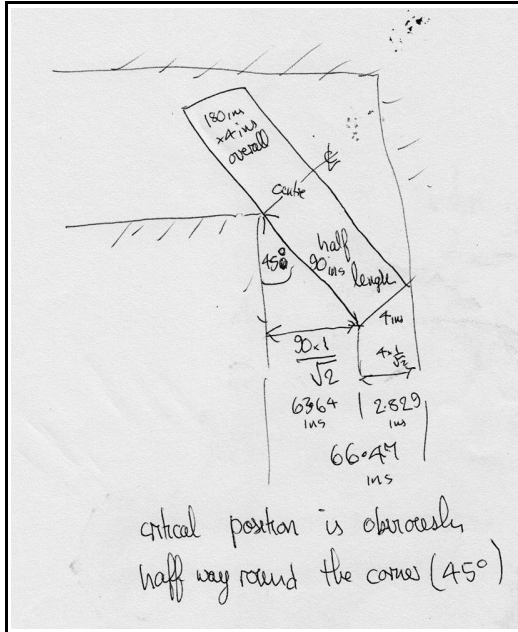 180 ins
x 4 ins
overall
centre
℄
45°
half
90 ins
length
4 ins
90 x 1
√2
4 x 1
√2
6364
ins
2.829
ins
66.47
ins
critical position is obviously
half way round the corner (45°)